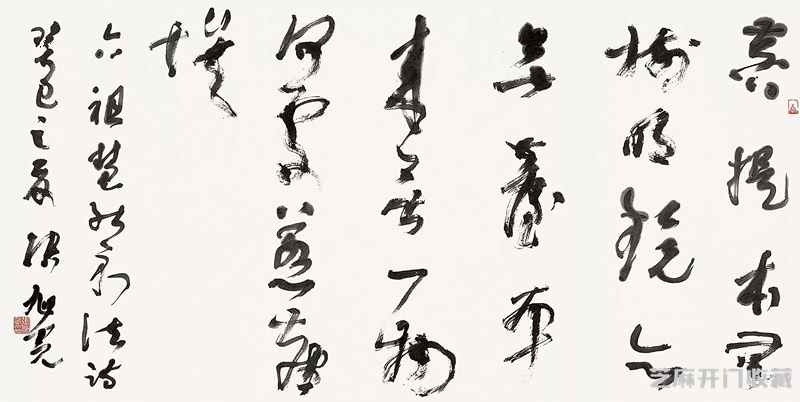 菩提本無
樹明鏡亦
無臺本
來無一物
何處惹塵
埃
六祖慧能示法詩
癸巳之夏 張旭光
芝麻开门收藏